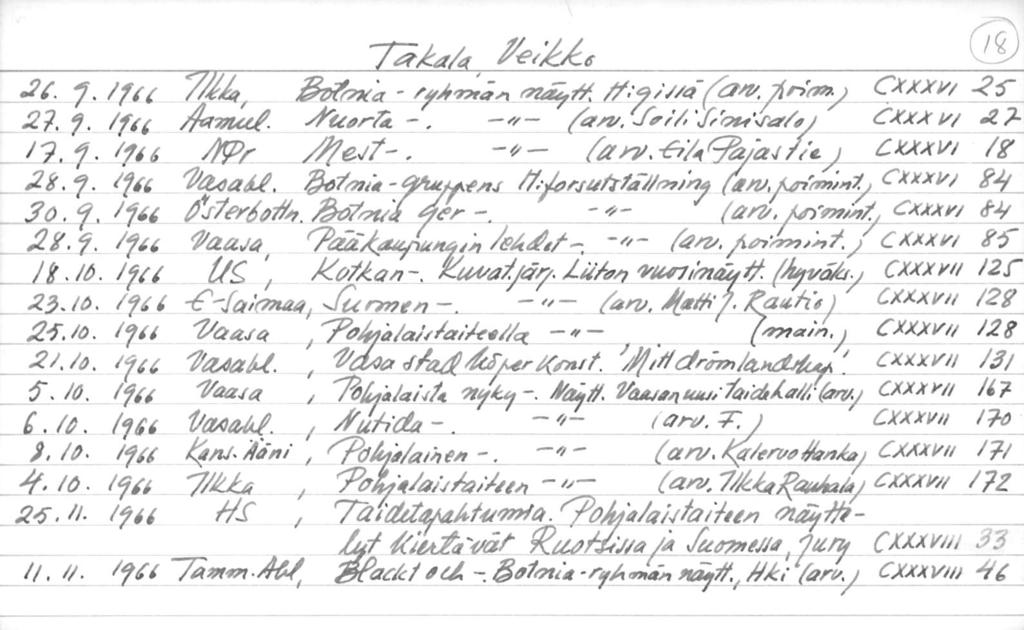 18
Takala, Veikko
26. 9. 1966 Ilkka, Botnia - ryhmän näytt. H:gissä (arv. poim.) CXXXVI 25
27. 9. 1966 Aamul. Nuorta -. -"- (arv. Soili Sinisalo) CXXXVI 27
17. 9. 1966 NPr Mest-. -"- (arv. Eila Pajastie) CXXXVI 18
28. 9. 1966 Vasabl. Botnia-gruppens H:forsutställning (arv. poimint.) CXXXVI 84
30. 9. 1966 Österbottn. Botnia ger -. -"- (arv. poimint.) CXXXVI 84
28. 9. 1966 Vaasa, Pääkaupungin lehdet -. -"- (arv. poimint.) CXXXVI 85
18. 10. 1966 US, Kotkan-. Kuvat.järj. Liiton vuosinäytt. (hyväks.) CXXXVII 125
23. 10. 1966 E-Saimaa, Suomen -. -"- (arv. Matti J. Rautio) CXXXVII 128
25. 10. 1966 Vaasa, Pohjalaistaiteella -"- (main.) CXXXVII 128
21. 10. 1966 Vasabl., Vasa stad köper konst. 'Mitt drömlandskap'. CXXXVII 131
5. 10. 1966 Vaasa, Pohjalaista nyky-. Näytt. Vaasan uusi taidehalli (arv.) CXXXVII 167
6. 10. 1966 Vasabl., Nutida -. -"- (arv. F.) CXXXVII 170
8. 10. 1966 Kans. Ääni, Pohjalainen -. -"- (arv. Kalervo Hanka) CXXXVII 171
4. 10. 1966 Ilkka, Pohjalaistaiteen -"- (arv. Ilkka Rauhala) CXXXVII 172
25. 11. 1966 HS, Taidetapahtumia. Pohjalaistaiteen näytte-
lyt kiertävät Ruotsissa ja Suomessa, jury CXXXVIII 33
11. 11. 1966 Tamm. Abl, Blackt och -. Botnia-ryhmän näytt., Hki (arv.) CXXXVIII 46